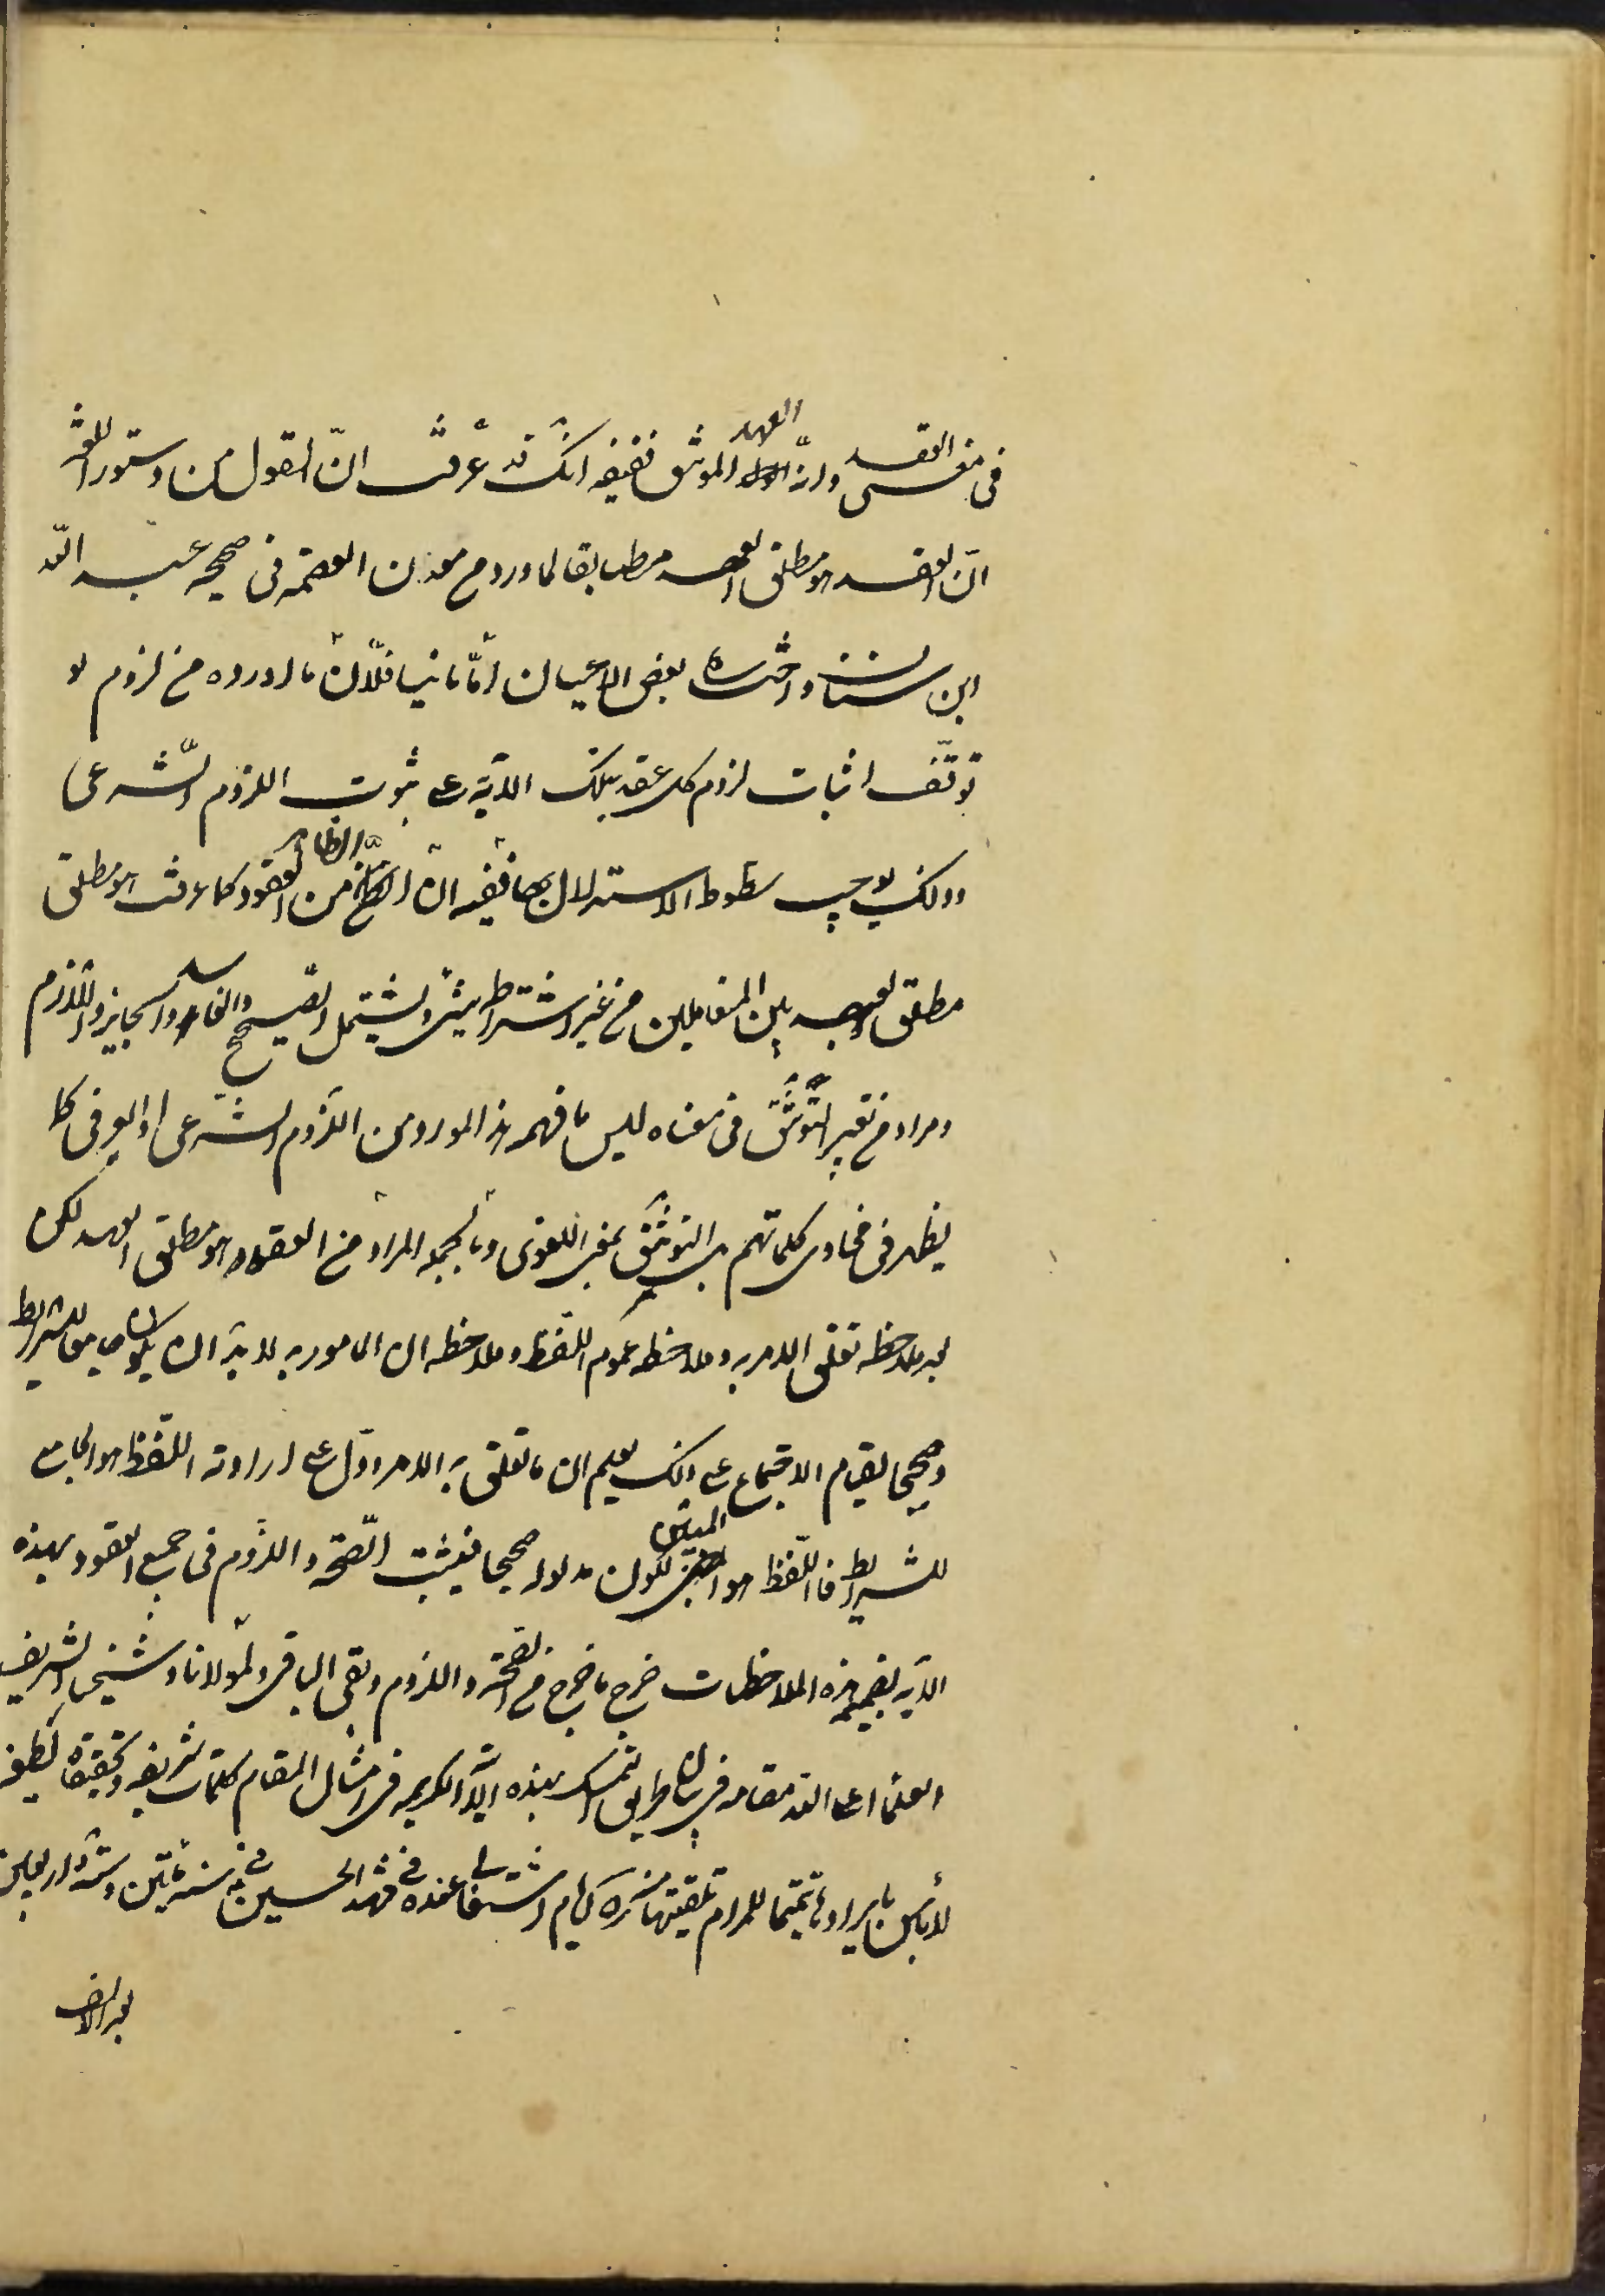 في معنى العقد وانّه العهد الموثق ففيه انك قد عرفت انّ المنقول من دستور اللغة
انّ العقد هو مطلق العهد مطابقا لما ورد من معدن العصمة في صحيحة عبد الله
ابن سنان واختاره بعض الاعيان امّا ثانيا فلانّ ما اورده من لزوم
توقّف اثبات لزوم كل عقد بتلك الآية على ثبوت اللزوم الشّرعى
وذلك يوجب سقوط الاستدلال بها ففيه ان الظاهر من العقود كما عرفت هو مطلق
مطلق العهد بين المتعاملين من غير اشتراط بشئ ويشتمل الصّحيح والفاسد والجايز واللازم
ومراد من تعبير التّوثّق في معناه ليس ما فهمه هذا المورد من اللّزوم الشّرعى او العرفى كما
يظهر في فحاوى كلماتهم بل التوثّق بمعنى اللغوى وبالجملة المراد من العقود هو مطلق العهد لكن
بعد ملاحظة تعلق الامر به وملاحظة عموم اللّفظ وملاحظة ان المامور به لا بدّ ان يكون جامعا للشرايط
وصحيحا لقيام الاجماع على ذلك يعلم ان ما تعلق به الامر ودلّ على ارادته اللّفظ هو الجامع
للشرايط فاللّفظ هو المبيّن لكون مدلوله صحيحا فيثبت الصّحّة واللزوم في جميع العقود بهذه
الآية بضميمة هذه الملاحظات خرج ما خرج من الصّحّة واللزوم وبقى الباقى ولمولانا وشيخنا الشريف
العلماء اعلى الله مقامه في بيان طريق التمسك بهذه الآية الكريمة في امثال المقام كلمات شريفة وتحقيقات لطيفة
لا بأس بايرادها تتميما للمرام تلقيتها منه في ايام اشتغالى عنده في مشهد الحسين في سنة مأتين وستّة واربعين
بعد الالف